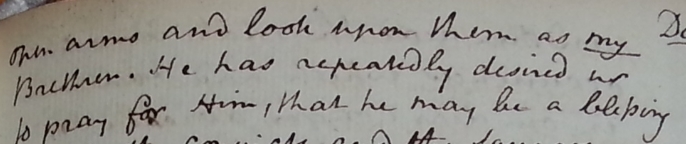 open arms and look upon them as my
Brethren. He has repeatedly desired us
to pray for Him, that he may be a blessing
and the